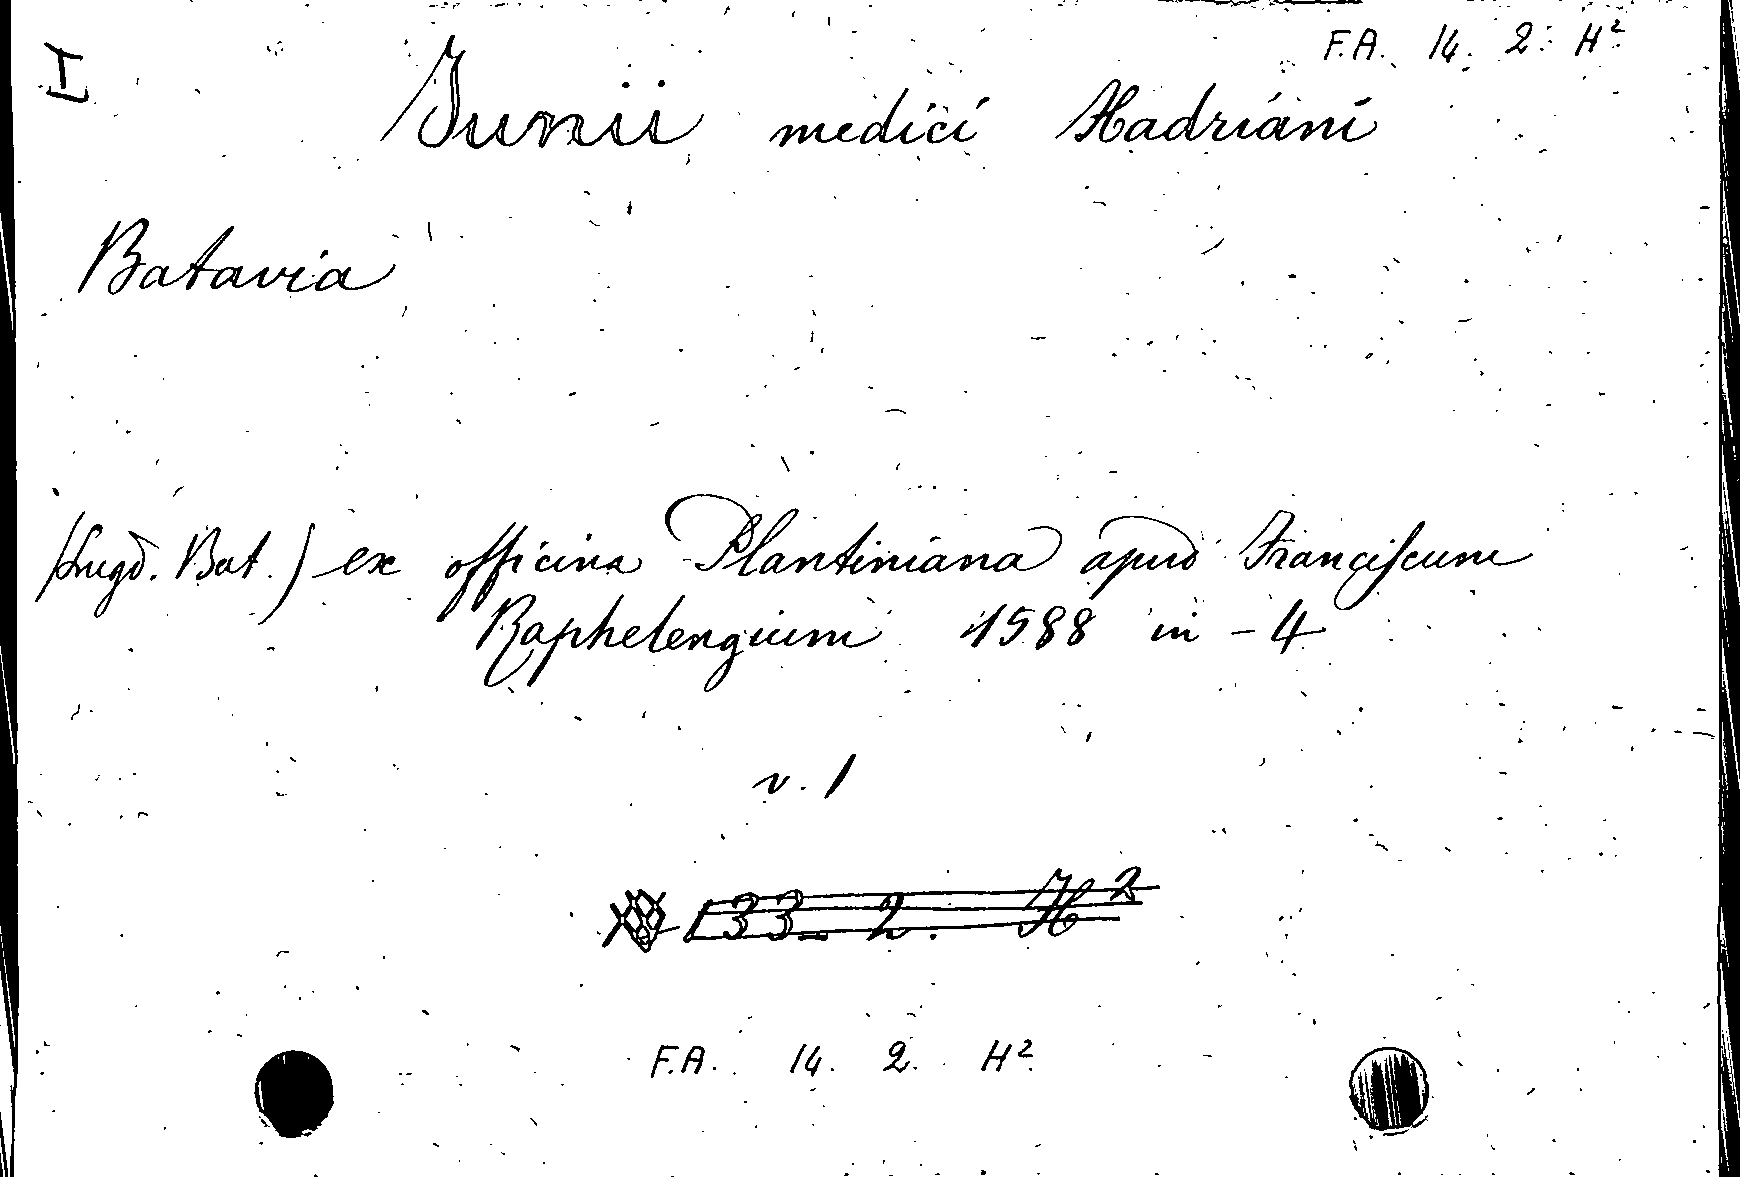 F.A. 14. 2. H²
I
Junii medici Hadriani
Batavia
(Lugd. Bat.) ex officina Plantiniana apud Franciscum
Raphelengium 1588 in-4
v. 1
133_ 2. H²
F.A. 14. 2. H²